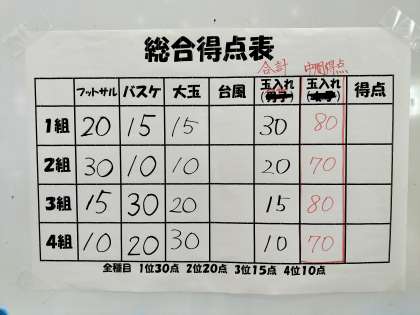 総合得点表
合計 中間得点
フットサル バスケ 大玉 台風 玉入れ 玉入れ 得点
1組 20 15 15 30 80
2組 30 10 10 20 70
3組 15 30 20 15 80
4組 10 20 30 10 70
全種目 1位30点 2位20点 3位15点 4位10点